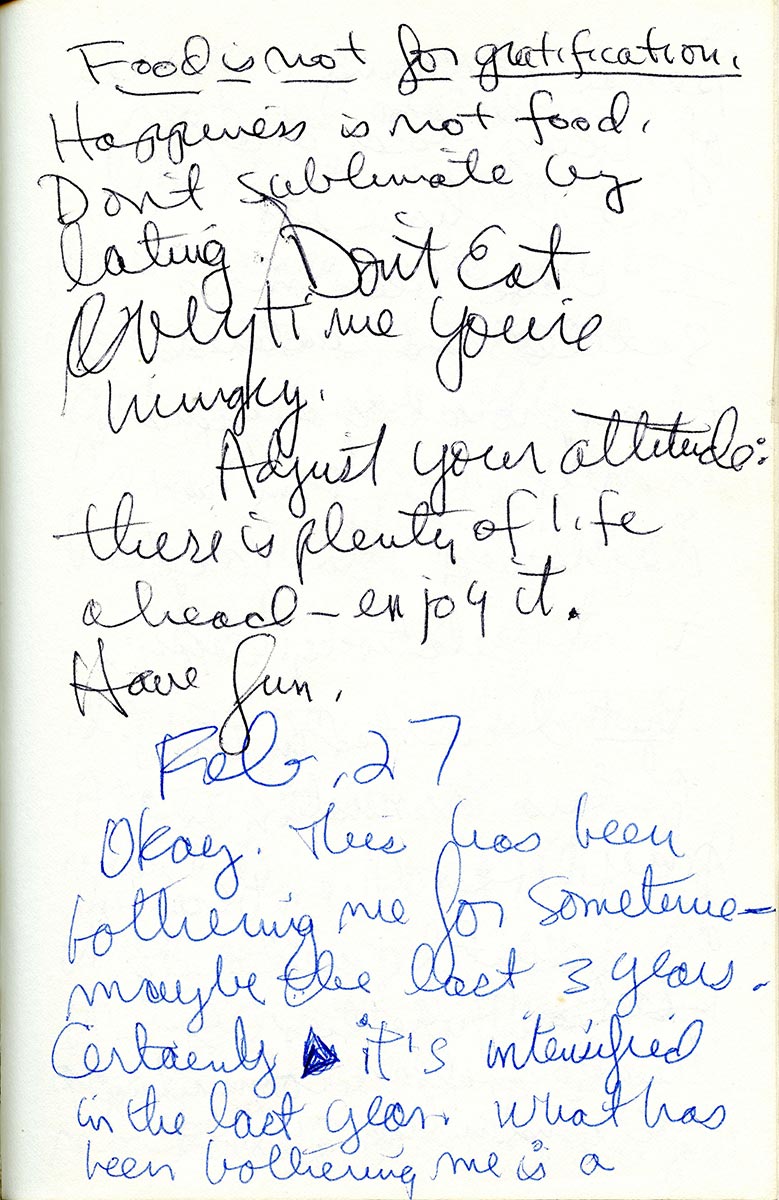 Food is not for gratification.
Happiness is not food.
Don't sublimate by
eating. Don't Eat
everytime you're
hungry.
Adjust your attitude:
there is plenty of life
ahead – enjoy it.
Have fun.
Feb. 27
Okay. This has been
bothering me for sometime –
maybe the last 3 years.
Certainly it's intensified
in the last year. What has
been bothering me is a